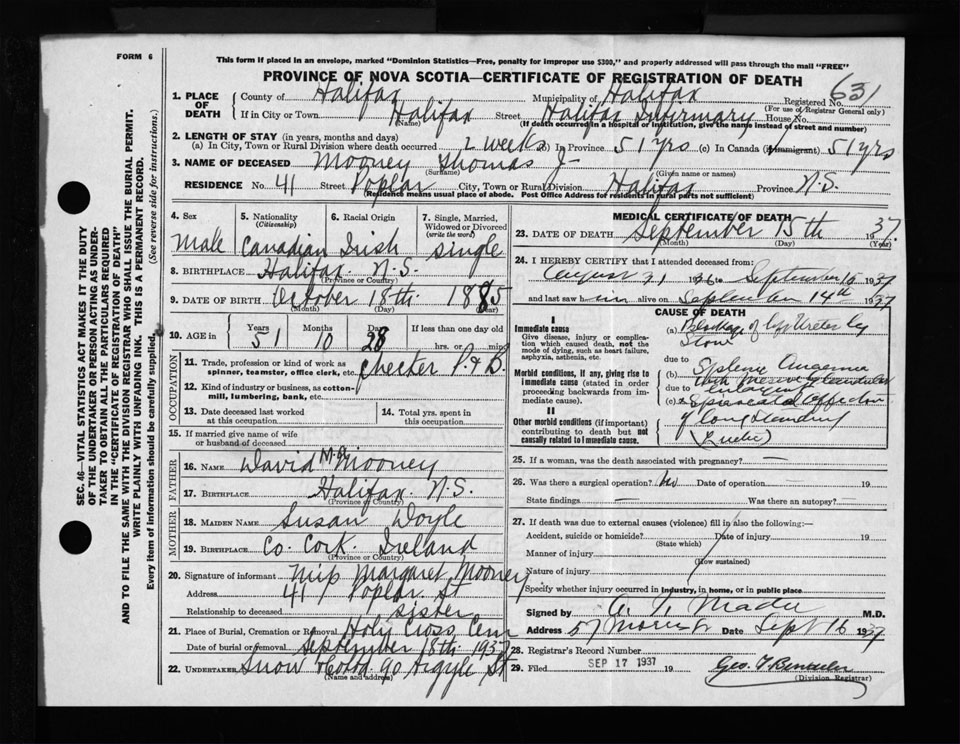 FORM 6
This form if placed in an envelope, marked "Dominion Statistics—Free, penalty for improper use $300," and properly addressed will pass through the mail "FREE"
PROVINCE OF NOVA SCOTIA—CERTIFICATE OF REGISTRATION OF DEATH
631
1. PLACE OF DEATH
County of Halifax Municipality of Halifax Registered No.
(For use of Registrar General only)
If in City or Town Halifax Street Halifax Infirmary House No.
(Name) (If death occurred in a hospital or institution, give the name instead of street and number)
2. LENGTH OF STAY (in years, months and days)
(a) In City, Town or Rural Division where death occurred 2 weeks (b) In Province 51 yrs (c) In Canada (if immigrant) 51 yrs
3. NAME OF DECEASED Mooney Thomas J-
(Surname) (Given name or names)
RESIDENCE No. 41 Street Poplar City, Town or Rural Division Halifax Province N.S.
(Residence means usual place of abode. Post Office Address for residents in rural parts not sufficient)
4. Sex Male
5. Nationality (Citizenship) Canadian
6. Racial Origin Irish
7. Single, Married, Widowed or Divorced (write the word) Single
8. BIRTHPLACE Halifax N.S.
(Province or Country)
9. DATE OF BIRTH October 18th 1885
(Month) (Day) (Year)
10. AGE in Years 51 Months 10 Days 28 If less than one day old
hrs. or min.
OCCUPATION
11. Trade, profession or kind of work as spinner, teamster, office clerk, etc. Checker P. & B.
12. Kind of industry or business, as cotton-mill, lumbering, bank, etc.
13. Date deceased last worked at this occupation
14. Total yrs. spent in this occupation
15. If married give name of wife or husband of deceased
FATHER
16. NAME David Mooney
17. BIRTHPLACE Halifax N.S.
(Province or Country)
MOTHER
18. MAIDEN NAME Susan Doyle
19. BIRTHPLACE Co. Cork Ireland
(Province or Country)
20. Signature of informant Miss Margaret Mooney
Address 41 Poplar St
Relationship to deceased sister
21. Place of Burial, Cremation or Removal Holy Cross Cem
Date of burial or removal September 18th 1937
22. UNDERTAKER Snow & Co Ltd. 90 Argyle St
(Name and address)
MEDICAL CERTIFICATE OF DEATH
23. DATE OF DEATH September 15th 1937
(Month) (Day) (Year)
24. I HEREBY CERTIFY that I attended deceased from:
August 31 1936 to September 15 1937
and last saw him alive on September 14th 1937
CAUSE OF DEATH
I
Immediate cause
Give disease, injury or complication which caused death, not the mode of dying, such as heart failure, asphyxia, asthenia, etc.
(a) Blockage of left Ureter by Stone
due to
Morbid conditions, if any, giving rise to immediate cause (stated in order proceeding backwards from immediate cause).
(b) Splenic Anaemia
due to
(c)
II
Other morbid conditions (if important) contributing to death but not causally related to immediate cause.
of long standing
25. If a woman, was the death associated with pregnancy? —
26. Was there a surgical operation? No Date of operation — 19
State findings — Was there an autopsy? —
27. If death was due to external causes (violence) fill in also the following:—
Accident, suicide or homicide? Date of injury 19
(State which)
Manner of injury
(How sustained)
Nature of injury
Specify whether injury occurred in industry, in home, or in public place
Signed by A. I. Mader M.D.
Address 57 Morris St Date Sept 16 1937
28. Registrar's Record Number
29. Filed SEP 17 1937 19
(Division Registrar)
SEC. 46—VITAL STATISTICS ACT MAKES IT THE DUTY
OF THE UNDERTAKER OR PERSON ACTING AS UNDER-
TAKER TO OBTAIN ALL THE PARTICULARS REQUIRED
IN THE "CERTIFICATE OF REGISTRATION OF DEATH"
AND TO FILE THE SAME WITH THE DIVISION REGISTRAR WHO SHALL ISSUE THE BURIAL PERMIT.
WRITE PLAINLY WITH UNFADING INK. THIS IS A PERMANENT RECORD.
Every item of information should be carefully supplied. (See reverse side for instructions.)